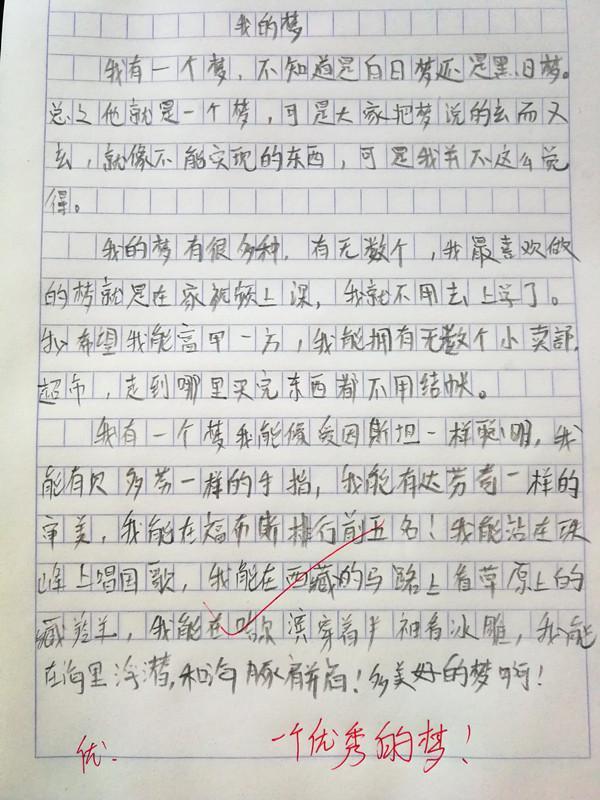 我的梦
我有一个梦，不知道是白日梦还是黑日梦。
总之他就是一个梦，可是大家把梦说的玄而又
玄，就像不能实现的东西，可是我并不这么觉
得。
我的梦有很多种，有无数个，我最喜欢做
的梦就是在家视频上课，我就不用去上学了。
我希望我能富甲一方，我能拥有无数个小卖部，
超市，走到哪里买完东西都不用结帐。
我有一个梦我能像爱因斯坦一样聪明，我
能有贝多芬一样的手指，我能有达芬奇一样的
审美，我能在福布斯排行前五名！我能站在珠
峰上唱国歌，我能在西藏的马路上看草原上的
藏羚羊，我能在哈尔滨穿着半袖看冰雕，我能
在海里浮潜，和海豚肩并肩！多美好的梦啊！
优.
一个优秀的梦！